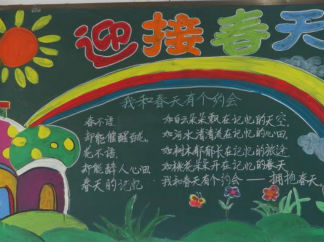 迎接春天
我和春天有个约会
春不语
却能催醒百花
花不语
却能醉人心田
春天的记忆
如白云朵朵飘在记忆的天空
如河水清清流在记忆的心田
如树木郁郁长在记忆的旅途
如桃花朵朵开在记忆的春天
我和春天有个约会——拥抱春天